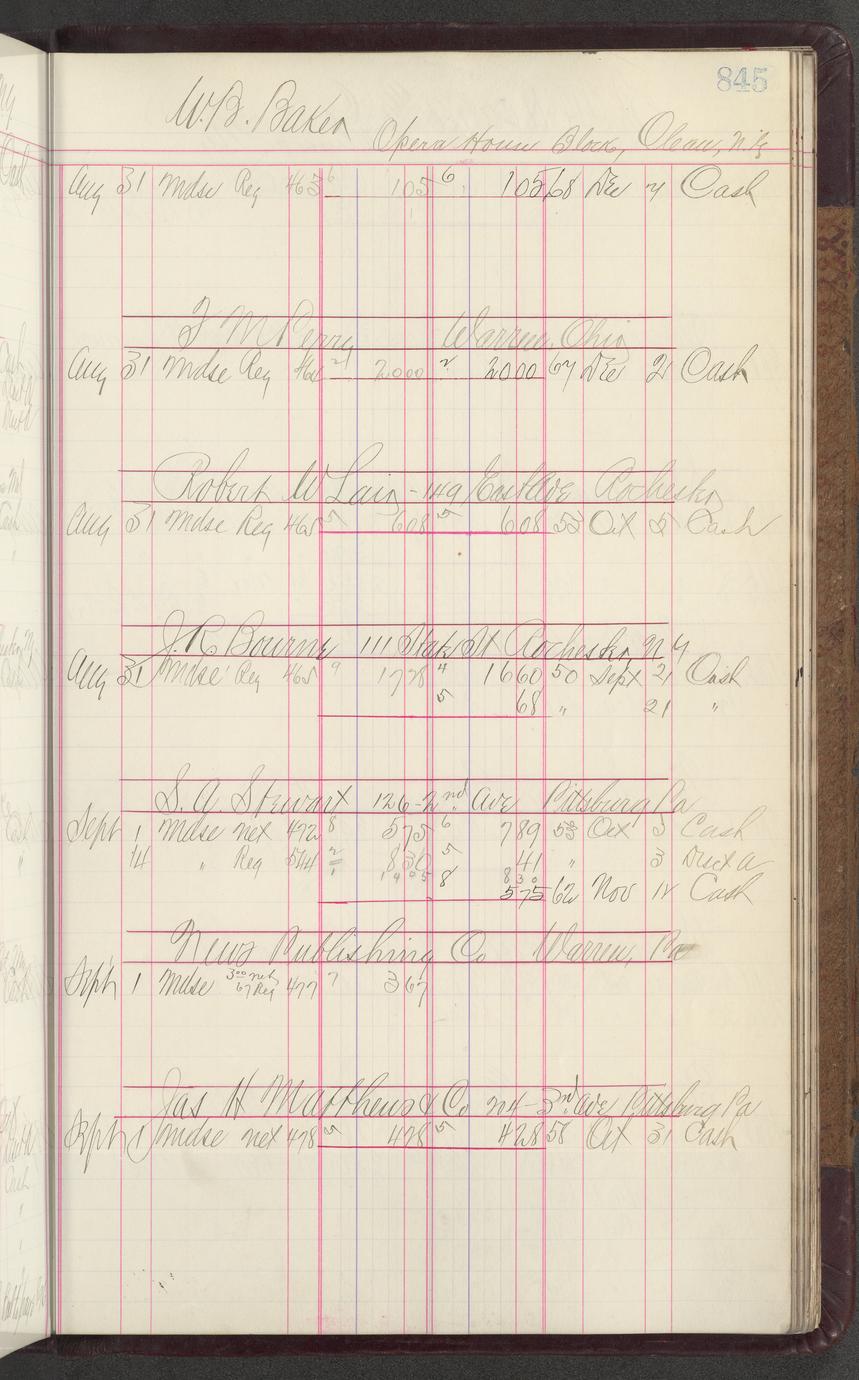 845
W. B. Baker Opera House Block, Olean, N.Y.
Aug 31 Mdse Reg 463 6 105 6 105 68 Dec 7 Cash
Warren, Ohio
Aug 31 Mdse Reg 464 21 2000 2 2000 67 Dec 21 Cash
Robert W Lain - 149 East Ave Rochester
Aug 31 Mdse Reg 465 5 608 5 608 53 Oct 5 Cash
J. R. Bourne 111 State St Rochester N Y
Aug 31 Mdse Reg 465 9 1728 4 1660 50 Sept 21 Cash
5 68 " 21 "
S. A. Stewart 126-2nd Ave Pittsburg Pa
Sept 1 Mdse net 472 8 575 6 789 53 Oct 3 Cash
14 " Reg 544 2 830 5 41 " 3
1 1405 8 830
575 62 Nov 12 Cash
News Publishing Co Warren, Pa
Sept 1 Mdse 3.00 net 67 Reg 477 7 367
Jas H Matthews & Co 3rd Ave Pittsburg Pa
Sept 1 Mdse net 478 5 428 5 428 58 Oct 31 Cash